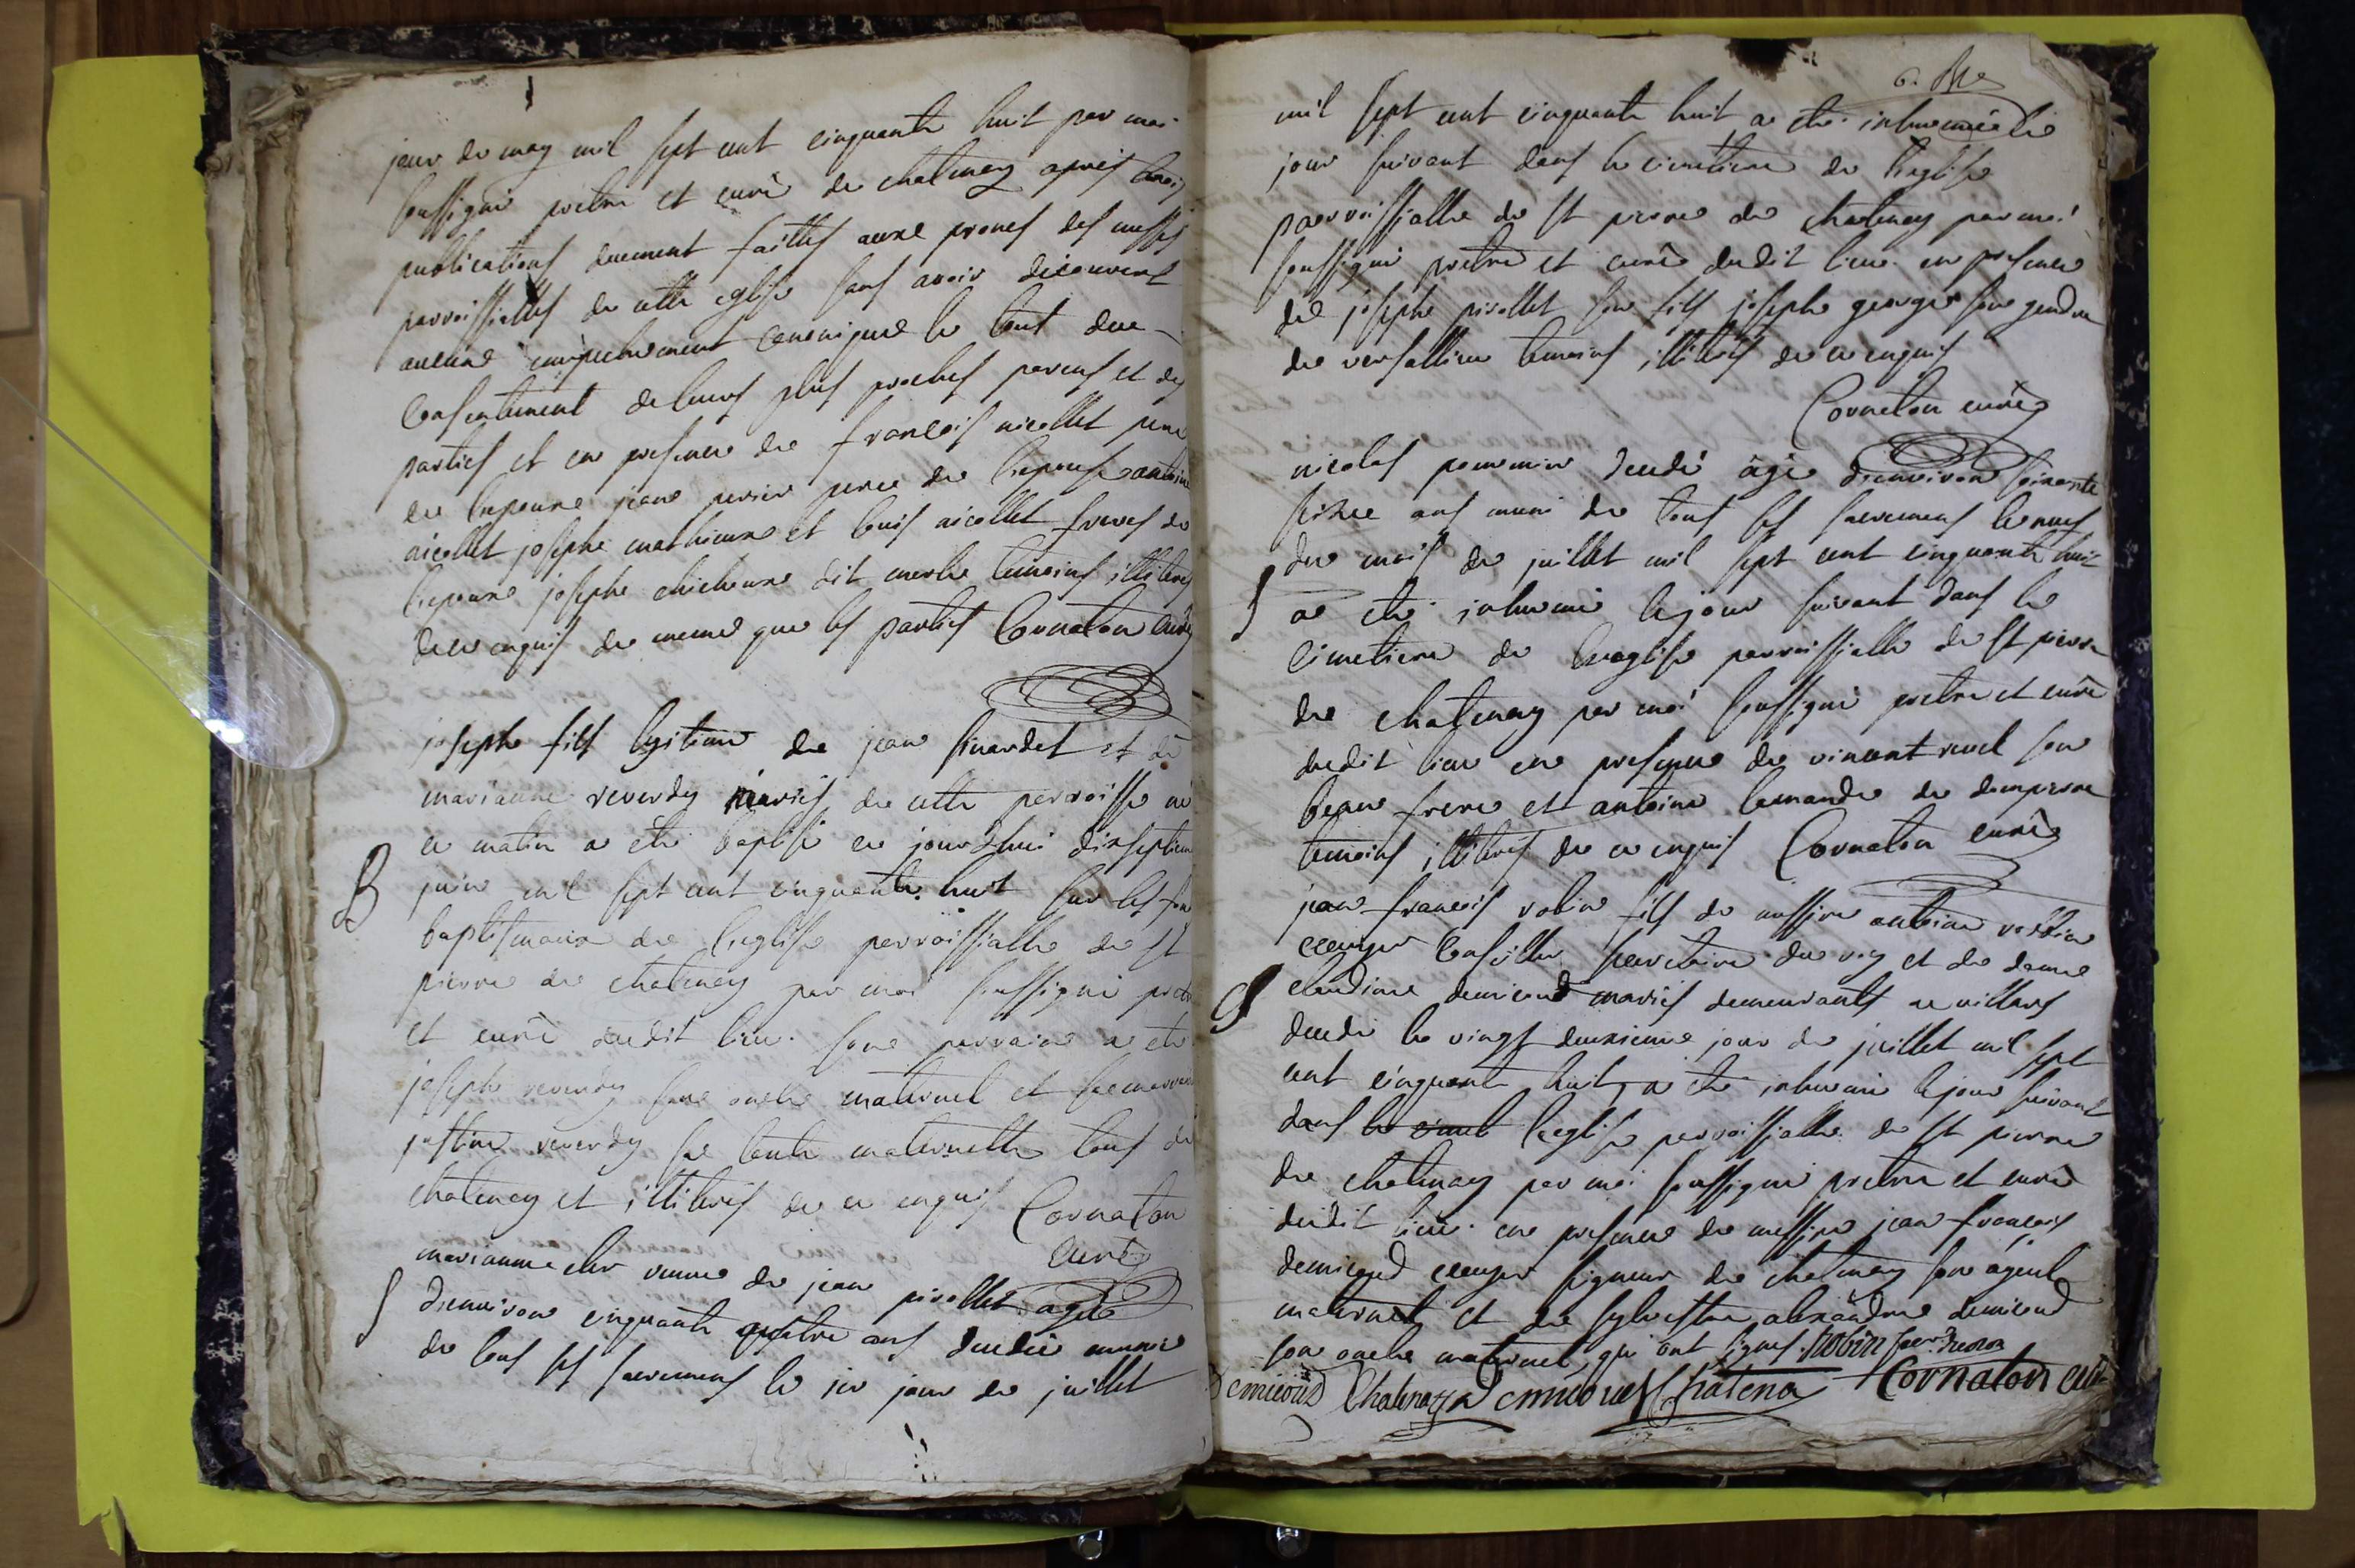 jour de may mil sept cent cinquante huit par moi
soussigné pretre et curé de chatenay après trois
publications duement faittes aux prones des messes
parroissialles de cette eglise sans avoir découvert
aucune empechement canonique le tout du
consentement de leurs plus proches parens et des
parties et en presence de françois nicollet pere
de l'epoux jean perier pere de l'epouse antoine
nicollet joseph mathieux et louis nicollet freres de
l'epoux joseph dit merle temoins illiterés
de ce enquis de meme que les parties Cornaton curé
joseph fils legitime de jean sinardet et de
marianne reverdy mariés de cette parroisse né
ce matin a eté baptisé ce jourdhui dixseptieme
B juin mil sept cent cinquante huit sur les fons
baptismaux de l'eglise parroissialle de st
pierre de chatenay par moi soussigné pretre
et curé dudit lieu. son parrain a eté
joseph reverdy son oncle maternel et sa marraine
justine reverdy sa tante maternelle tous de
chatenay et illiterés de ce enquis Cornaton
curé
marianne veuve de jean pirollet agée
S d'environ cinquante quatre ans munie
de tous ses sacremens le 1er jour de juillet
mil sept cent cinquante huit a eté inhumée le
jour suivant dans le cimetiere de l'eglise
parroissialle de st pierre de chatenay par moi
soussigné pretre et curé dudit lieu en presence
de joseph pirollet son fils joseph george son gendre
de versallieu temoins illiterés de ce enquis
Cornaton curé
nicolas agé d'environ soixante
seize ans muni de tous ses sacremens le neuf
du mois de juillet mil sept cent cinquante huit
S a eté inhumé le jour suivant dans le
cimetiere de l'eglise parroissialle de st pierre
de chatenay par moi soussigné pretre et curé
dudit lieu en presence de vincent son
beau frere et antoine de dompierre
temoins illiterés de ce enquis Cornaton curé
jean françois robin fils de messire antoine robin
ecuyer conseiller secretaire du roy et de dame
claudine demicoud mariés demeurants a villars
S le vingt deuxieme jour de juillet mil sept
cent cinquante huit, a eté inhumé le jour suivant
dans l'eglise parroissialle de st pierre
de chatenay par moi soussigné pretre et curé
dudit lieu en presence de messire jean françois
demicoud ecuyer seigneur de chatenay son
maternel et de sylvestre alexandre demicoud
son oncle maternel qui ont signés. Robin
Demicoud Chatenay Demicoud Chatena Cornaton curé